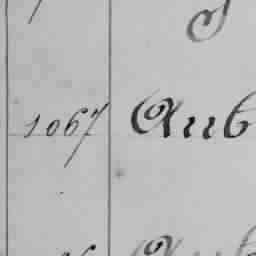 1067 Aub